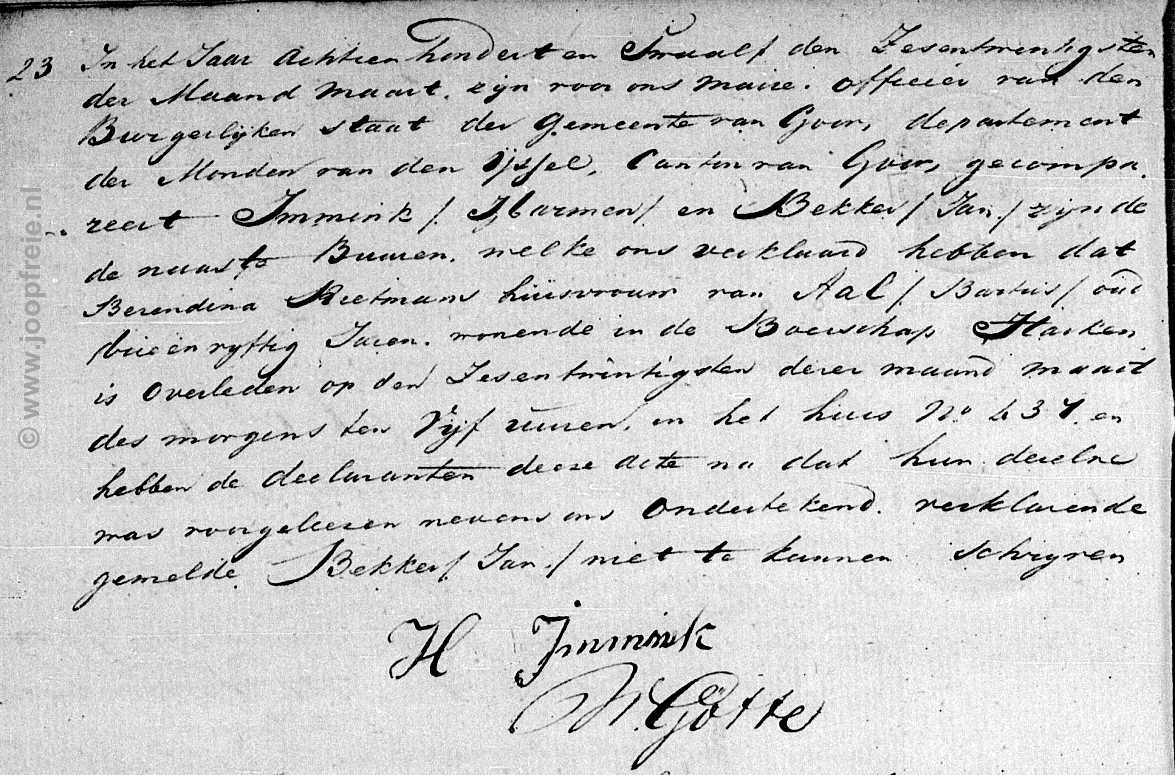 23 In het Jaar Achtien hondert en Twaalf den Zesentwentigsten
der Maand Maart. zijn voor ons Maire. officier van den
Burgerlijken staat der Gemeente van Goor, departement
der Monden van den Yssel, Canton van Goor, gecompa
reert Immink / Harmen / en Bekker / Jan / zijnde
de naaste Buuren. welke ons verklaard hebben dat
Berendina Reetmans huisvrouw van Aal / Bartus / oud
drie en vyftig Jaren. wonende in de Boerschap Harken
is Overleden op den Zesentwintigsten dezer maand maart
des morgens ten Vijf uuren. in het huis No 437. en
hebben de declaranten deese acte na dat hun deselve
was voorgeleesen nevens ons Ondertekend. verklarende
gemelde Bekker / Jan / niet te kunnen schryven
H Immink
W. Götte
© www.joopfreie.nl